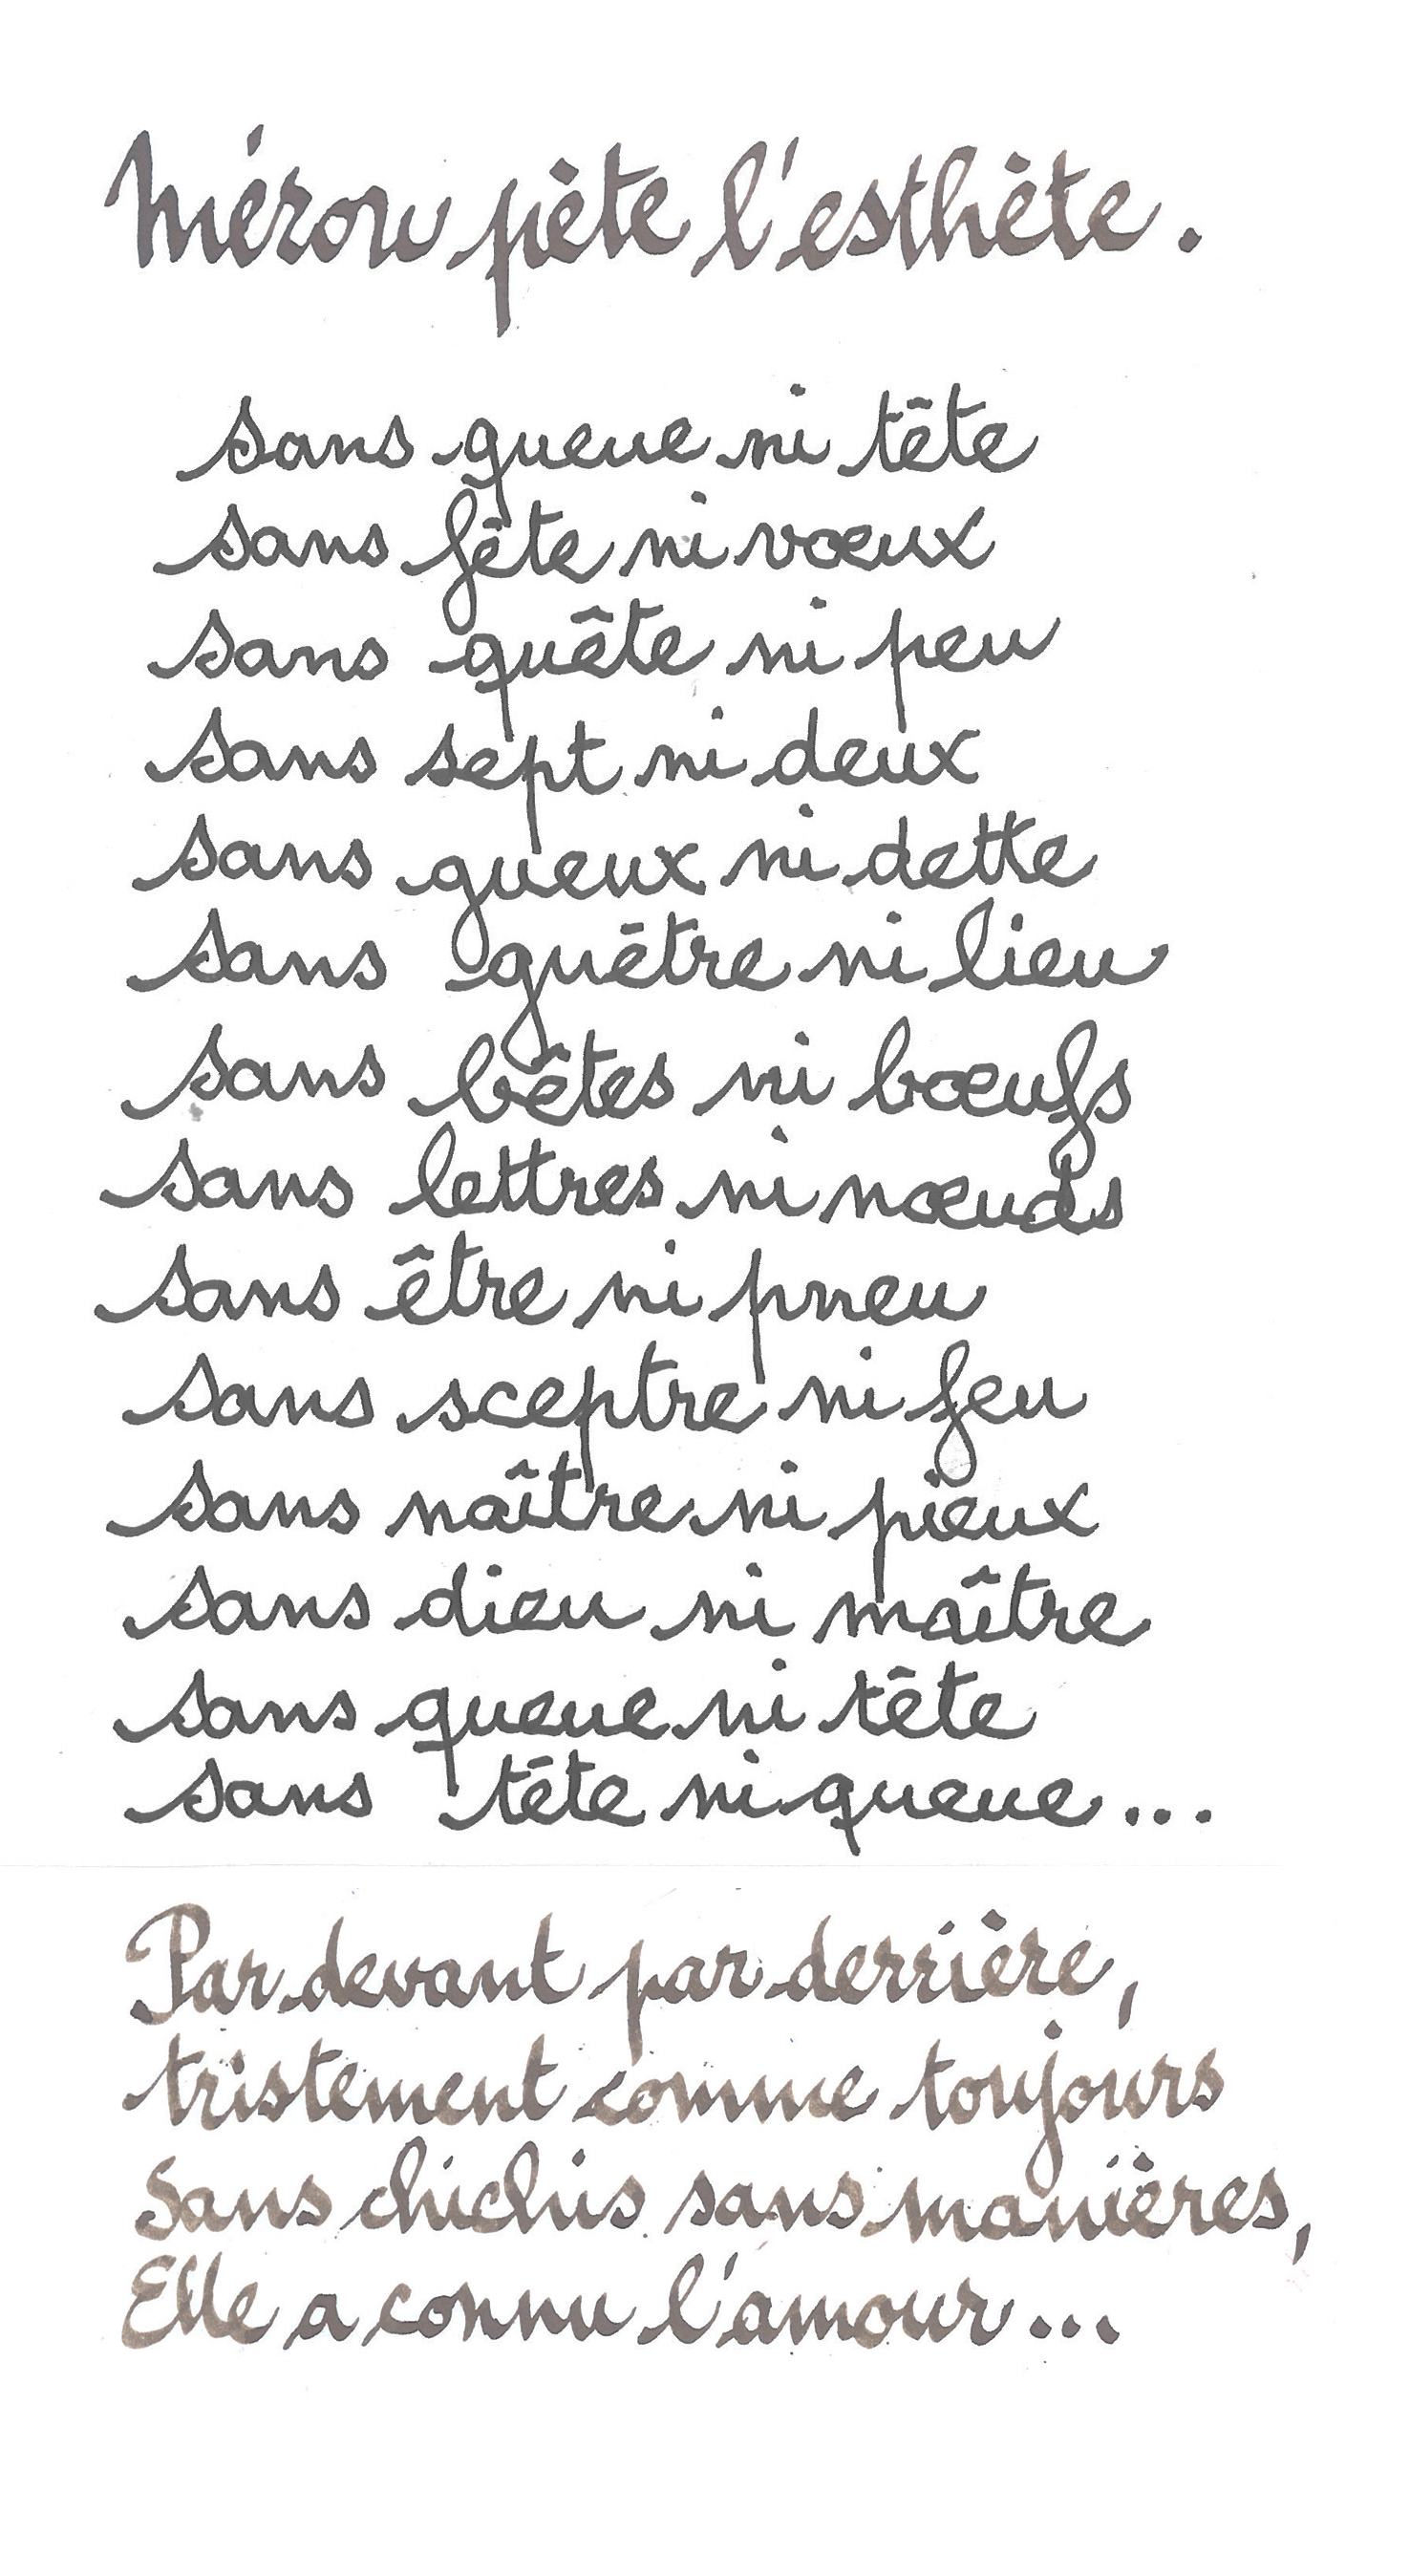 Mérou pète l'esthète.
sans queue ni tête
sans fête ni vœux
sans quête ni peu
sans sept ni deux
sans gueux ni dette
sans guêtre ni lieu
sans bêtes ni bœufs
sans lettres ni nœuds
sans être ni pneu
sans sceptre ni feu
sans naître ni pieux
sans dieu ni maître
sans queue ni tête
sans tête ni queue...
Par devant par derrière,
tristement comme toujours
Sans chichis sans manières,
Elle a connu l'amour...